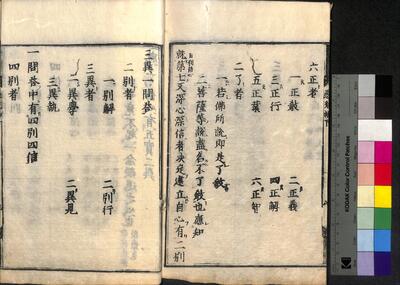 六正者
一正教 二正義
三正行 四正解
五正業 六正智
二了者
一若佛所說即是了教
二菩薩等說盡名不了教也應知
就第七又深心深信者決定建立自心有二別
三異一問答
二別者
一別解 二別行
三異者
一異學 二異見
三異説
一問答中有四別四信
四別者
KODAK Color Control Patches